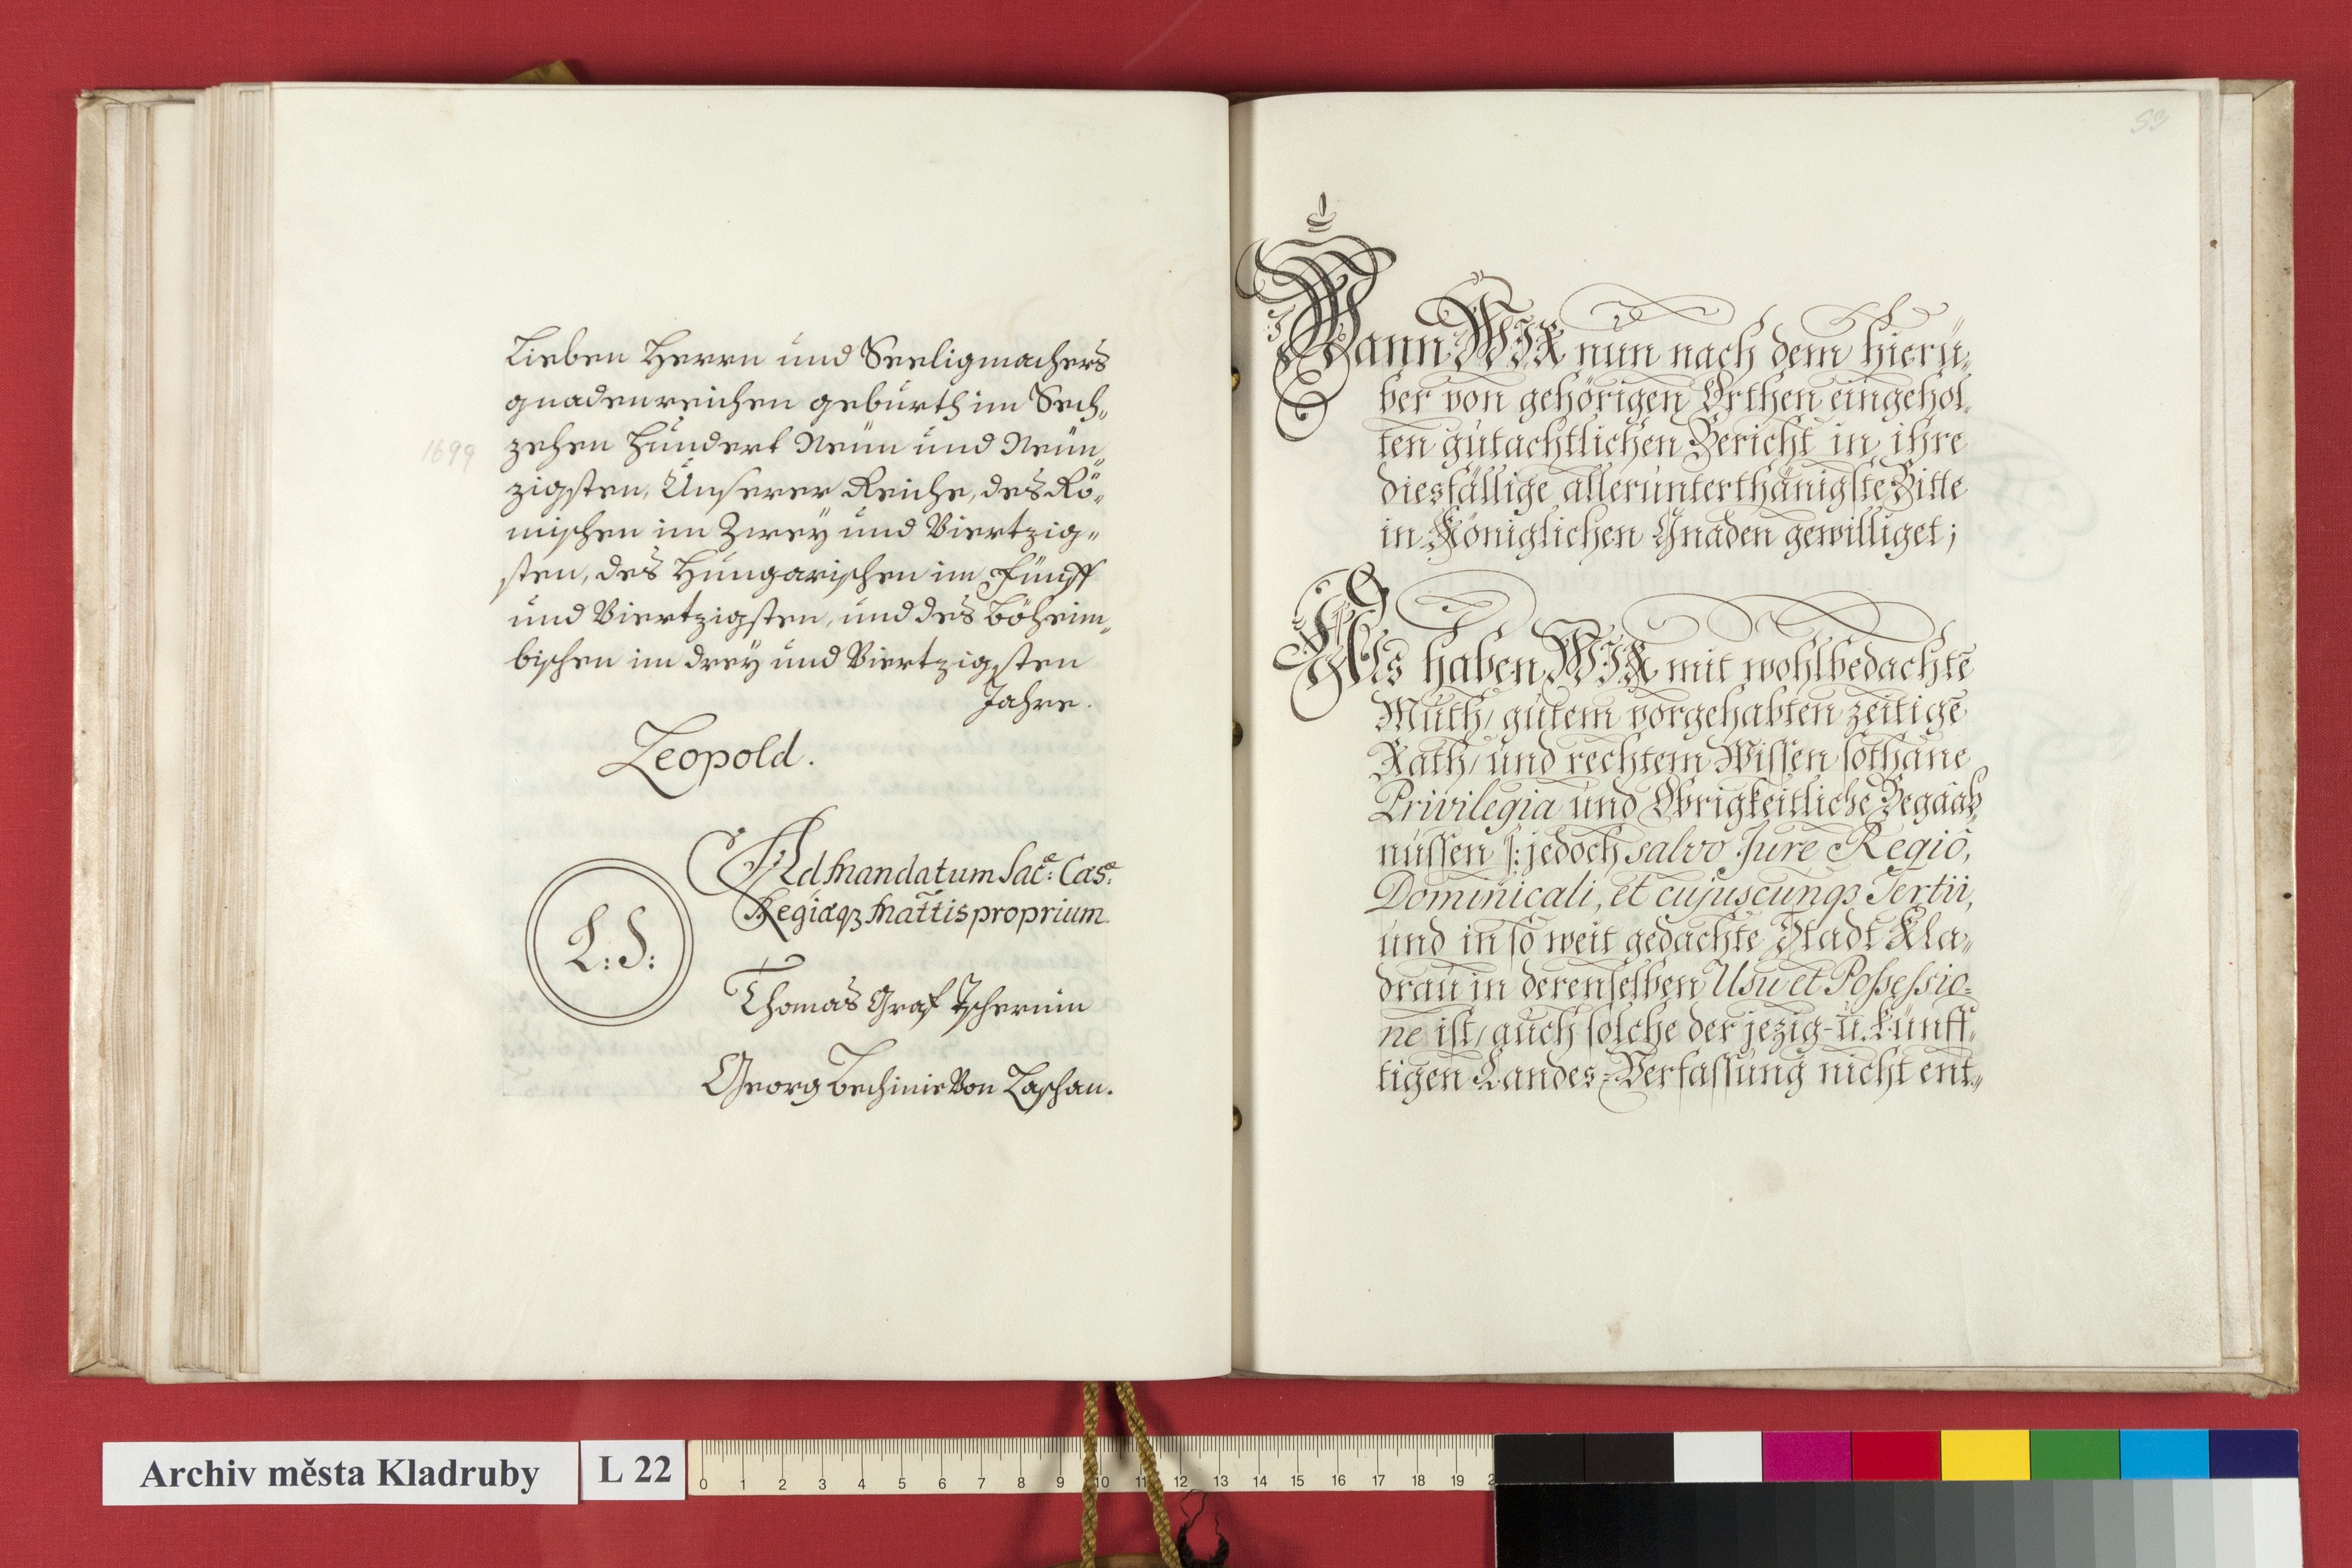 Lieben Herrn und Seeligmachers
gnadenreichen gebürth im Sech„
zehen Hundert Neün und Neün„
1699
zigsten, Unserer Reiche, des Rö„
mischen im Zwey und Viertzig„
sten, des Hungarischen im Fünff
und Viertzigsten, und des Böheim„
bischen im drey und Viertzigsten
Jahre.
Leopold.
Ad Mandatum Sac:æ Cæs:æ
Regiæq3 Mattis proprium.
L: S:
Thomas Graf Tschernin
Georg Bechinie Von Laschan.
53
Wann WIR nun nach dem hierü„
ber von gehörigen Orthen eingehol„
ten gutachtlichen Bericht in ihre
diesfällige allerunterthänigste Bitte
in Königlichen Gnaden gewilliget;
Als haben WIR mit wohlbedachtē
Muth, gutem vorgehabten zeitigē
Rath, und rechtem Wissen sothane
Privilegia und Obrigkeitliche Begaab„
nussen /: jedoch salvo Jure Regio,
Dominicali, et cujuscunq3 Tertii,
und in so weit gedachte Stadt Kla„
drau in derenselben Usu et Possessio=
ne ist, auch solche der jezig- u. künff„
tigen Landes=Verfassung nicht ent„
Archiv města Kladruby
L 22
0 1 2 3 4 5 6 7 8 9 10 11 12 13 14 15 16 17 18 19 2